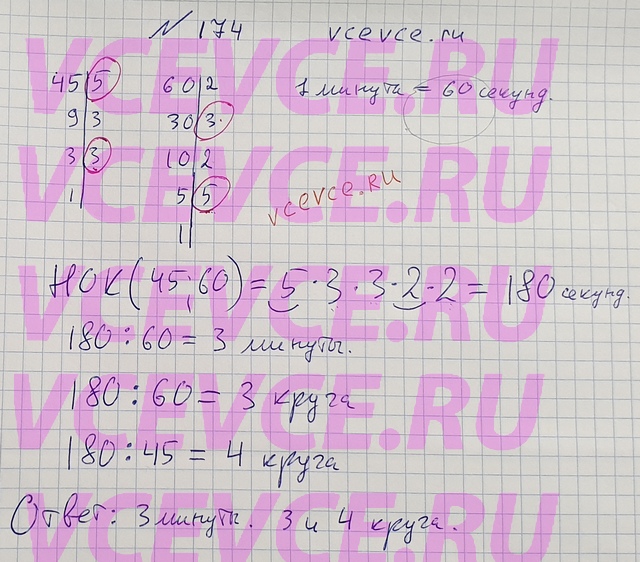 № 174 vcevce.ru
45|5 60|2 1 минута = 60 секунд.
9|3 30|3
3|3 10|2
1 5|5
1
vcevce.RU
НОК(45;60) = 5·3·3·2·2 = 180 секунд.
180:60 = 3 минуты.
180:60 = 3 круга
180:45 = 4 круга
Ответ: 3 минуты. 3 и 4 круга.
VCEVCE.RU
VCEVCE.RU
VCEVCE.RU
VCEVCE.RU
VCEVCE.RU